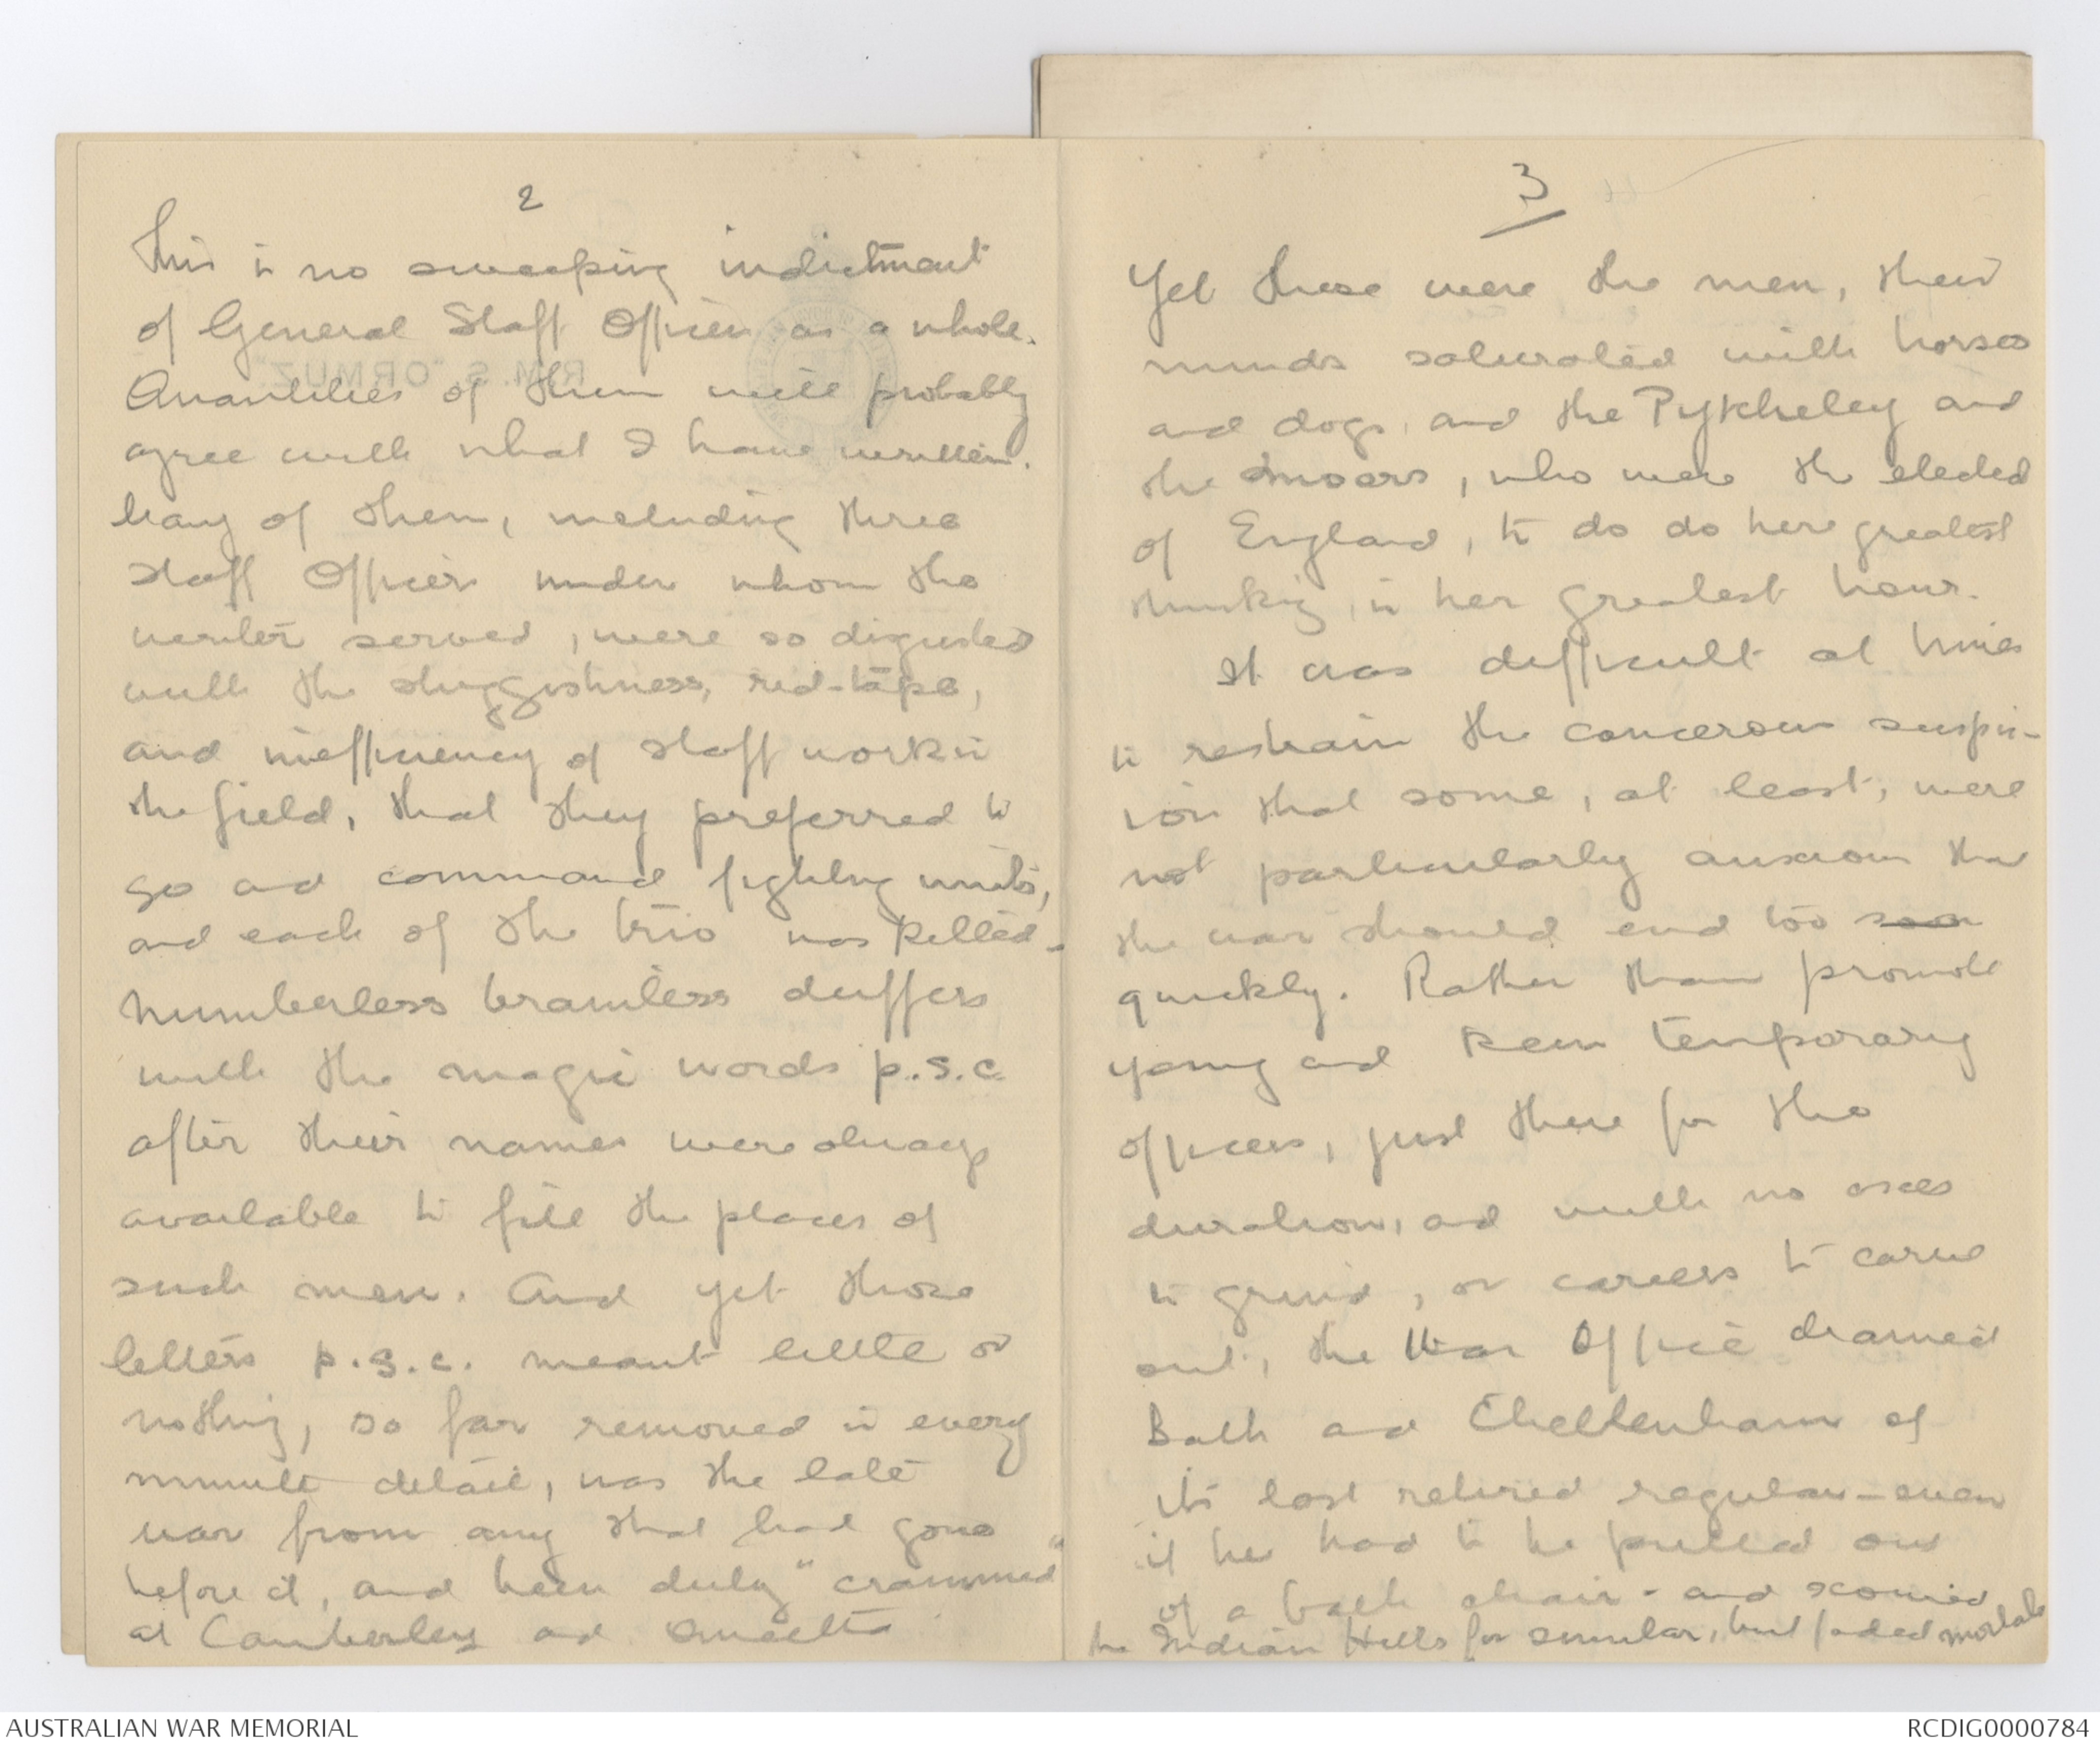 2
This is no sweeping indictment
of General Staff Officers as a whole.
Quantities of them will probably
agree with what I have written.
Many of them, including three
Staff Officers under whom the
writer served, were so disgusted
with the sluggishness, red-tape,
and inefficiency of staff work in
the field, that they preferred to
go and command fighting units,
and each of the trio was killed.
Numberless brainless duffers
with the magic words p.s.c.
after their names were always
available to fill the places of
such men. And yet those
letters p.s.c. meant little or
nothing, so far removed in every
minute detail, was the late
war from any that had gone
before it, and been duly "crammed"
at Camberley and Quetta
3
Yet these were the men, their
minds saturated with horses
and dogs, and the Pytcheley and
the Smoors, who were the elected
of England, to do do her greatest
thinking, in her greatest hour.
It was difficult at times
to restrain the cancerous suspic-
ion that some, at least, were
not particularly anxious that
the war should end too soon
quickly. Rather than promote
young and keen temporary
officers, just there for the
duration, and with no axes
to grind, or careers to carve
out, the War Office drained
Bath and Cheltenham of
its last retired regular - even
if he had to be pulled out
of a bath chair - and scoured
the Indian Hills for similar, but faded mortals
AUSTRALIAN WAR MEMORIAL
RCDIG0000784